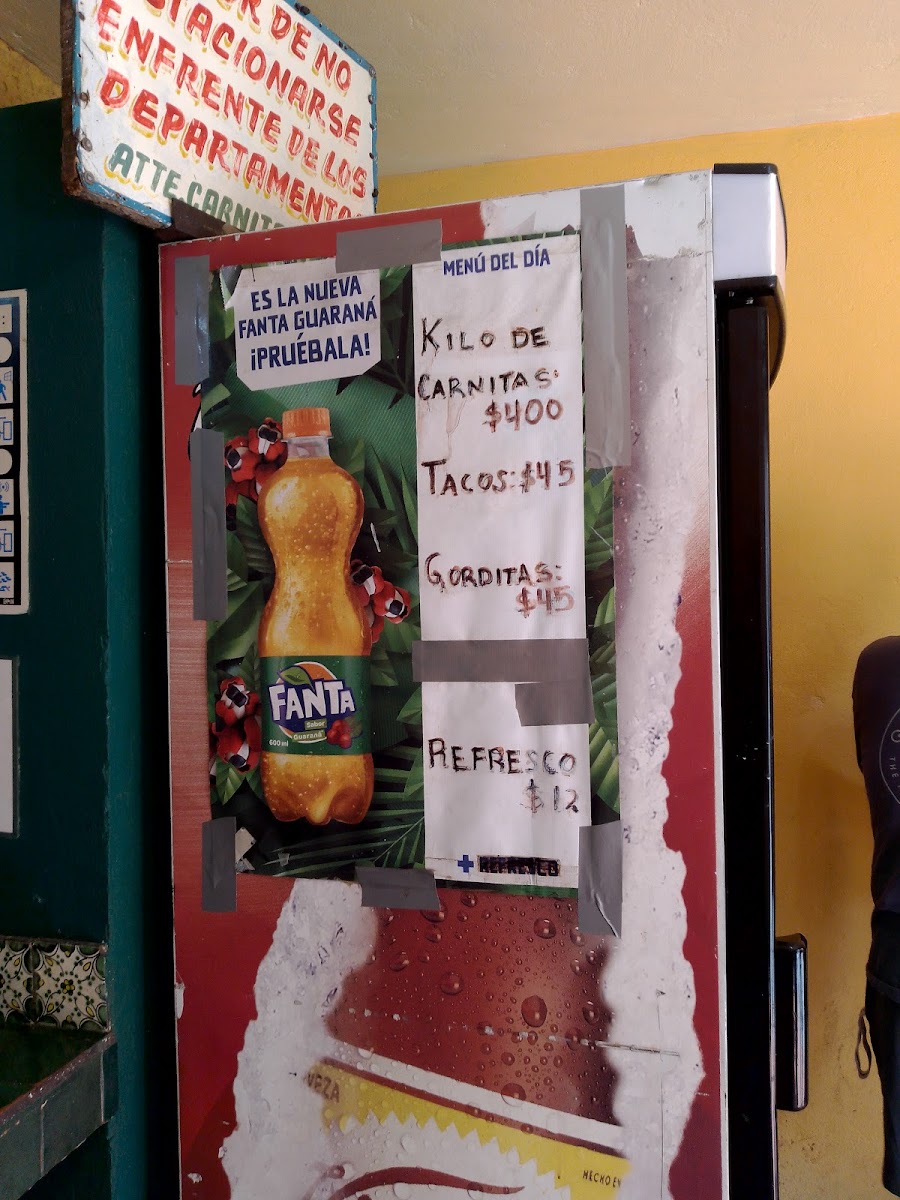 DE NO
ESTACIONARSE
ENFRENTE DE LOS
DEPARTAMENTOS
ATTE. CARNIT
ES LA NUEVA
FANTA GUARANÁ
¡PRUÉBALA!
FANTA
Sabor
Guaraná
600 ml
MENÚ DEL DÍA
KILO DE
CARNITAS:
$400
TACOS: $45
GORDITAS:
$45
REFRESCO
$12
+ REFRESCO
VEZA
HECHO EN
THE